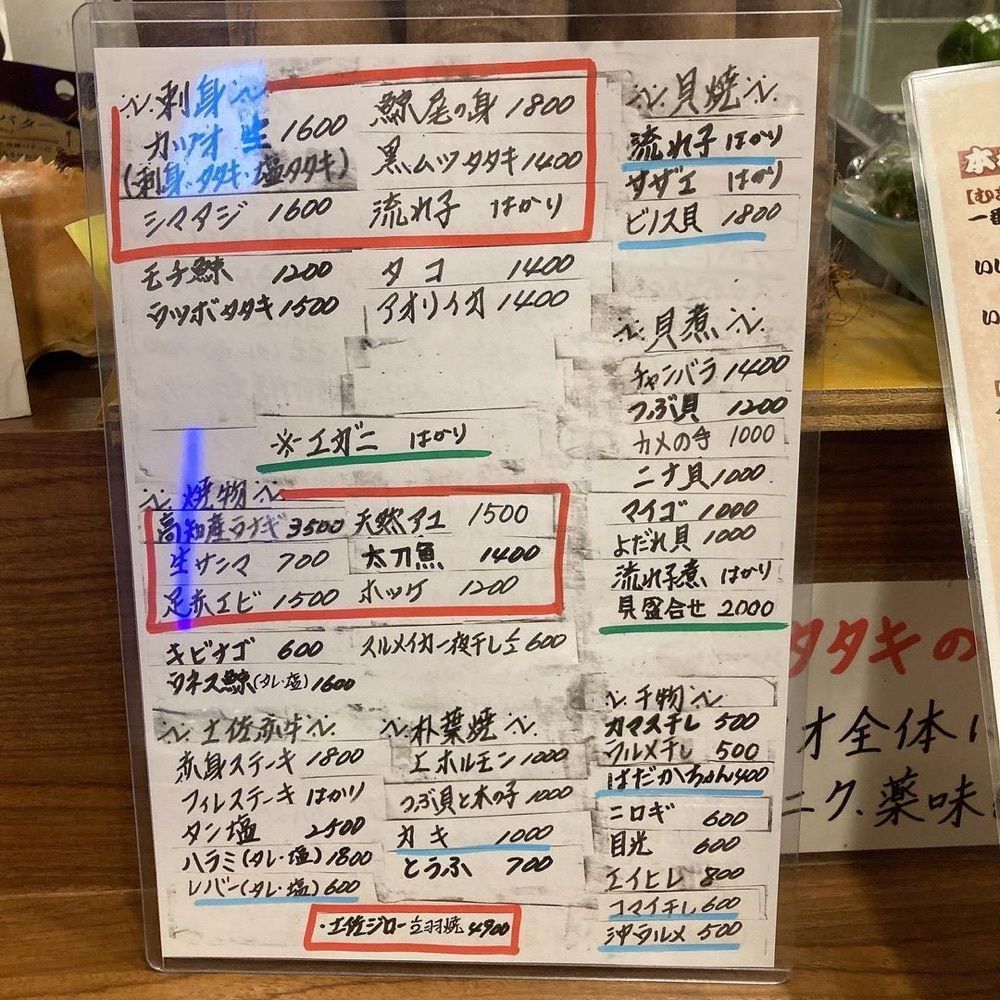 刺身
カツオ 生 1600
(刺身・タタキ・塩タタキ)
シマアジ 1600
鯨尾の身 1800
黒ムツタタキ 1400
流れ子 はかり
モチ鯨 1200
ウツボタタキ 1500
タコ 1400
アオリイカ 1400
※エガニ はかり
焼物
高知産ウナギ 3500
生サンマ 700
足赤エビ 1500
天然アユ 1500
太刀魚 1400
ホッケ 1200
キビナゴ 600
ウネス鯨(タレ・塩) 1600
スルメイカ一夜干し 600
土佐赤牛
赤身ステーキ 1800
フィレステーキ はかり
タン塩 2500
ハラミ(タレ・塩) 1800
レバー(タレ・塩) 600
朴葉焼
エホルモン 1000
つぶ貝と木の子 1000
カキ 1000
とうふ 700
・土佐ジロー 羽焼 4900
貝焼
流れ子 はかり
サザエ はかり
ビノス貝 1800
貝煮
チャンバラ 1400
つぶ貝 1200
カメの手 1000
ニナ貝 1000
マイゴ 1000
よだれ貝 1000
流れ子煮 はかり
貝盛合せ 2000
干物
カマス干し 500
ウルメ干し 500
はだかちゃん 400
ニロギ 600
目光 600
エイヒレ 800
コマイ干し 600
沖ウルメ 500
タタキの
オ全体
ニク、薬味